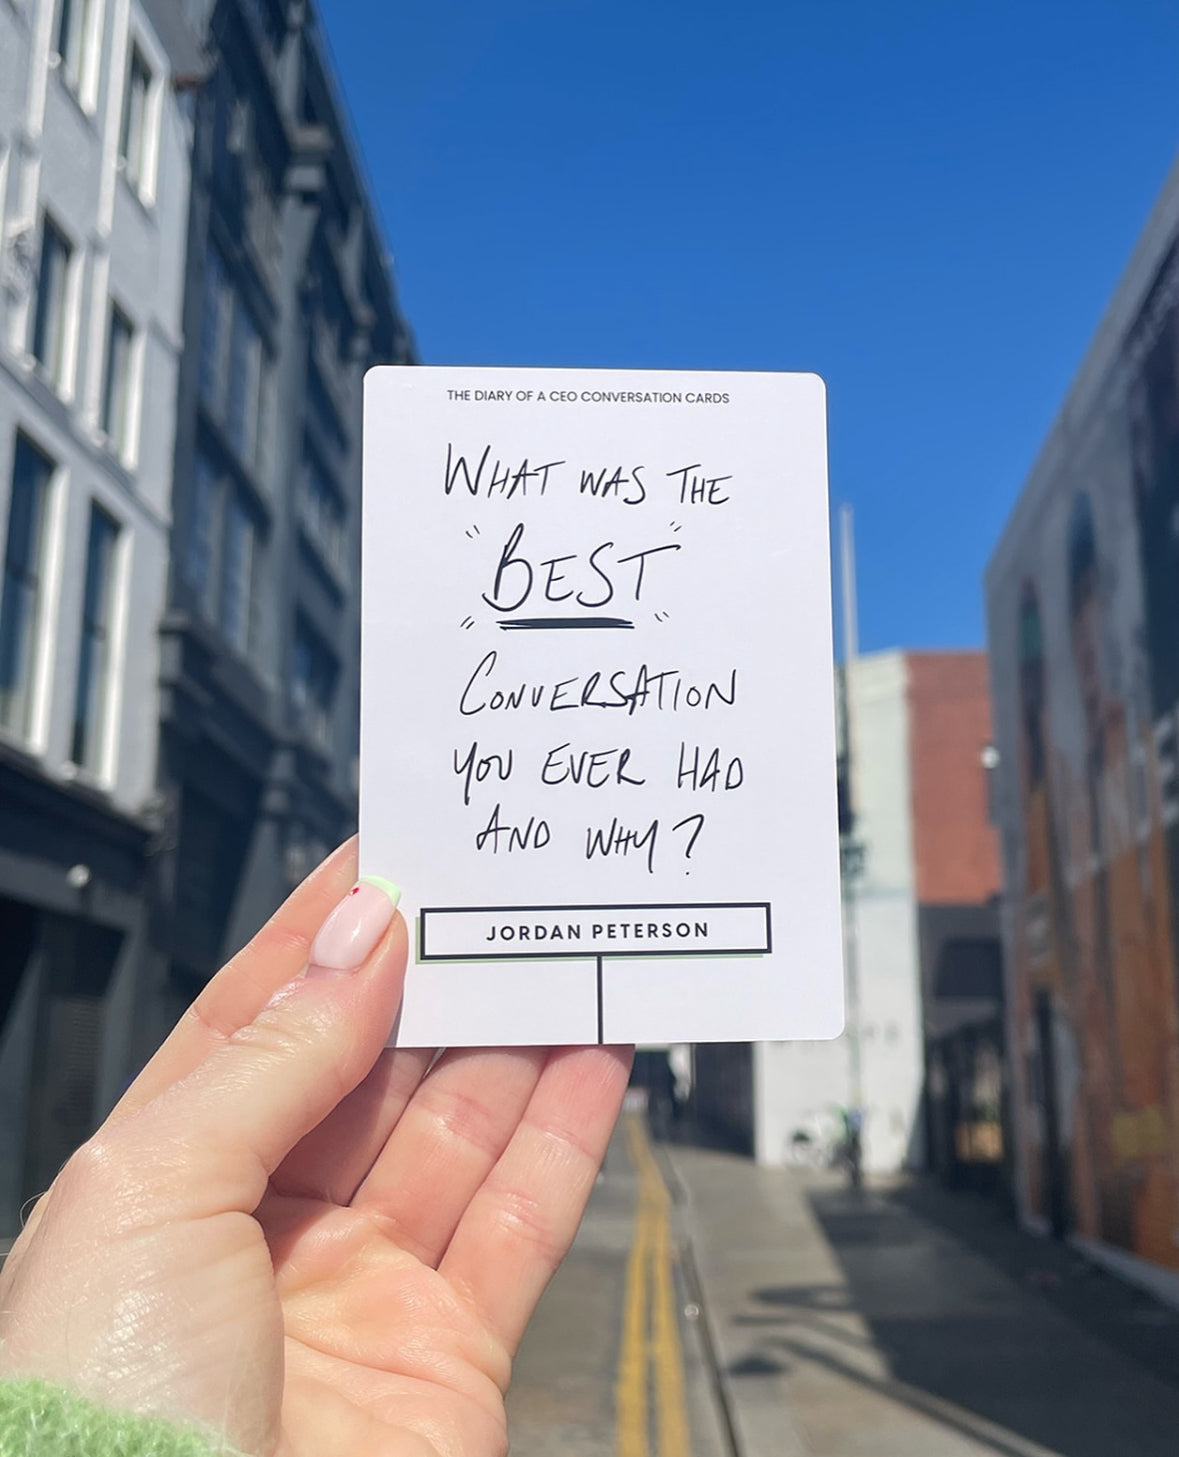 THE DIARY OF A CEO CONVERSATION CARDS
WHAT WAS THE
"BEST"
CONVERSATION
YOU EVER HAD
AND WHY?
JORDAN PETERSON